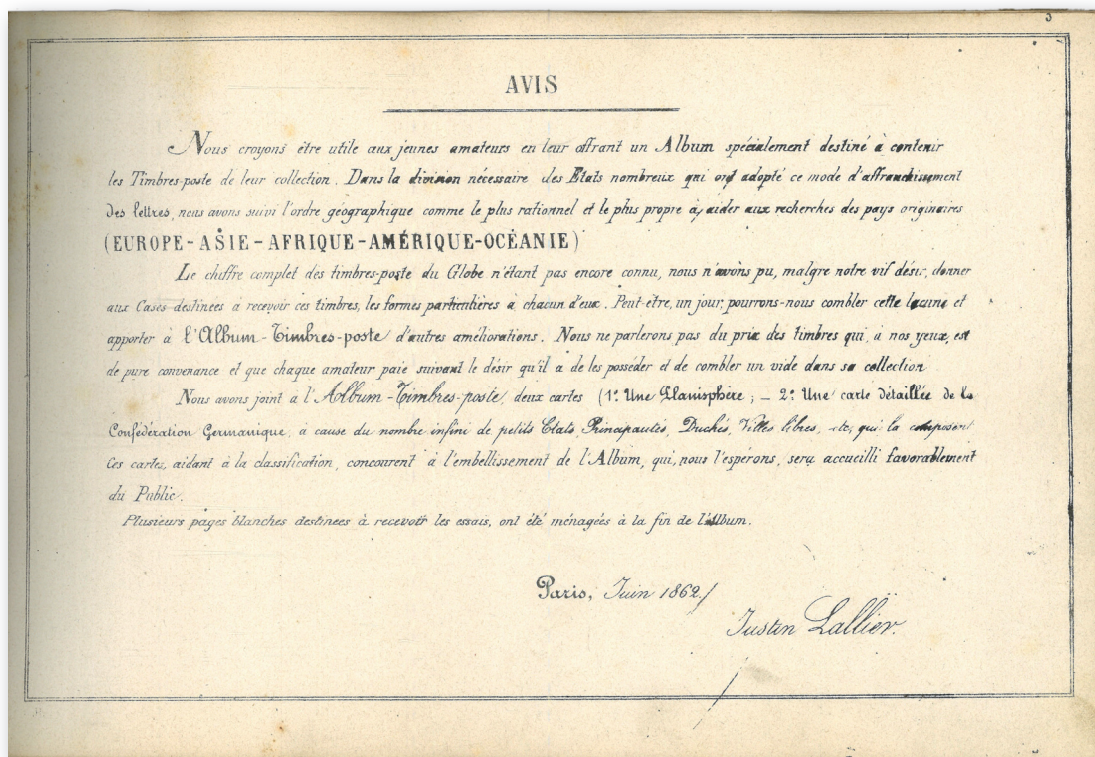 AVIS
Nous croyons être utile aux jeunes amateurs en leur offrant un Album spécialement destiné à contenir
les Timbres-poste de leur collection. Dans la division nécessaire des Etats nombreux qui ont adopté ce mode d'affranchissement
des lettres, nous avons suivi l'ordre géographique comme le plus rationnel et le plus propre à aider aux recherches des pays originaires
(EUROPE-ASIE-AFRIQUE-AMÉRIQUE-OCÉANIE)
Le chiffre complet des timbres-poste du Globe n'étant pas encore connu, nous n'avons pu, malgré notre vif désir, donner
aux Cases destinées à recevoir ces timbres, les formes particulières à chacun d'eux. Peut-être, un jour, pourrons-nous combler cette lacune et
apporter à l'Album-Timbres-poste d'autres améliorations. Nous ne parlerons pas du prix des timbres qui, à nos yeux, est
de pure convenance et que chaque amateur paie suivant le désir qu'il a de les posséder et de combler un vide dans sa collection
Nous avons joint à l'Album-Timbres-poste, deux cartes (1º Une Planisphère; – 2º Une carte détaillée de la
Confédération Germanique, à cause du nombre infini de petits Etats, Principautés, Duchés, Villes libres, etc, qui la composent
Ces cartes, aidant à la classification, concourent à l'embellissement de l'Album, qui, nous l'espérons, sera accueilli favorablement
du Public.
Plusieurs pages blanches destinées à recevoir les essais, ont été ménagées à la fin de l'Album.
Paris, Juin 1862.
Justin Lallier.